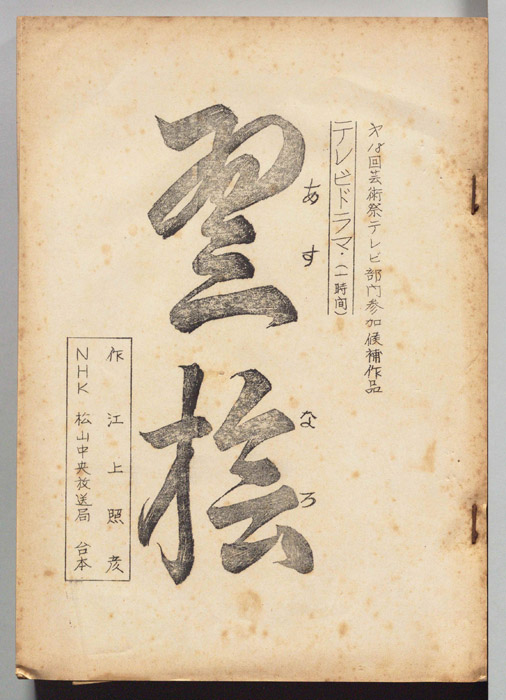 回芸術祭テレビ部門参加候補作品
テレビドラマ・(一時間)
あすなろ
翌桧
作 江上照彦
NHK 松山中央放送局 台本